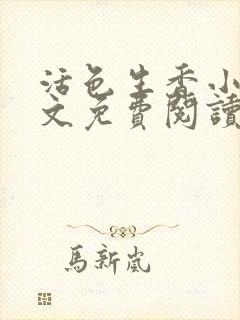 活色生香小
文免費閱讀
馬新嵐